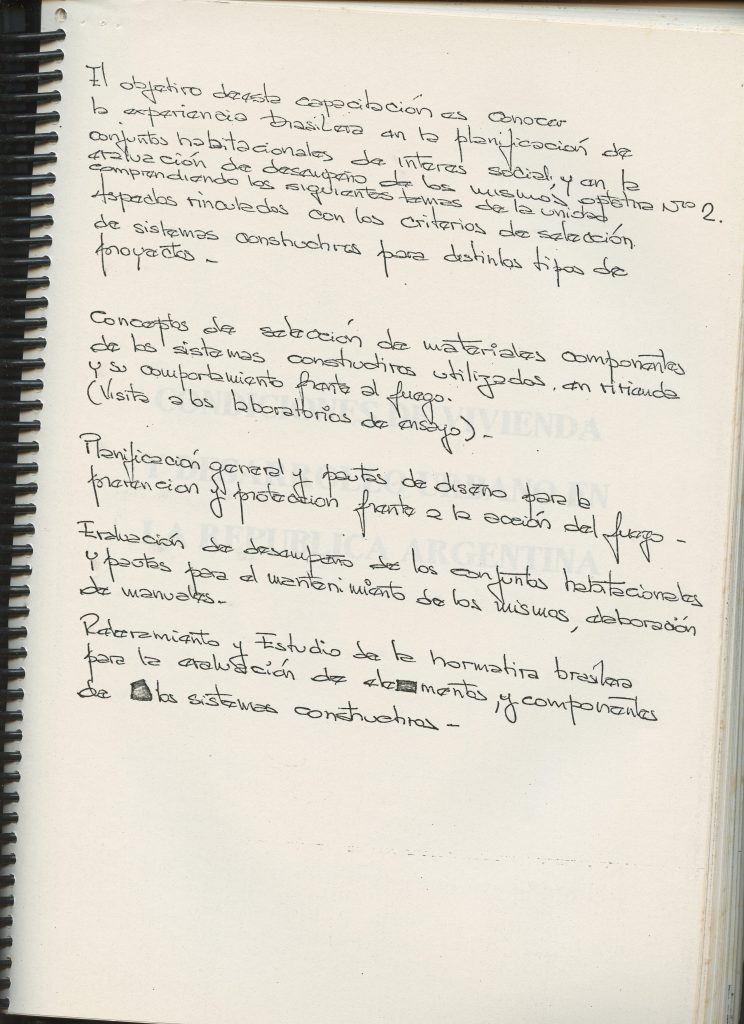 El objetivo de esta capacitación es conocer
la experiencia brasilera en la planificación de
conjuntos habitacionales de interes social, y en la
evaluación de desempeño de los mismos,
comprendiendo los siguientes temas de la unidad Nro 2.
Aspectos vinculados con los criterios de selección
de sistemas constructivos para distintos tipos de
proyectos -
Conceptos de selección de materiales componentes
de los sistemas constructivos utilizados, en vivienda
y su comportamiento frente al fuego.
(Visita a los laboratorios de ensayo) -
Planificación general y pautas de diseño para la
prevencion y proteccion frente a la acción del fuego -
Evaluación de desempeño de los conjuntos habitacionales
y pautas para el mantenimiento de los mismos, elaboración
de manuales -
Relevamiento y Estudio de la normativa brasilera
para la evaluación de elementos, y componentes
de los sistemas constructivos -
CONDICIONES DE VIVIENDA
Y DESARROLLO URBANO EN
LA REPUBLICA ARGENTINA